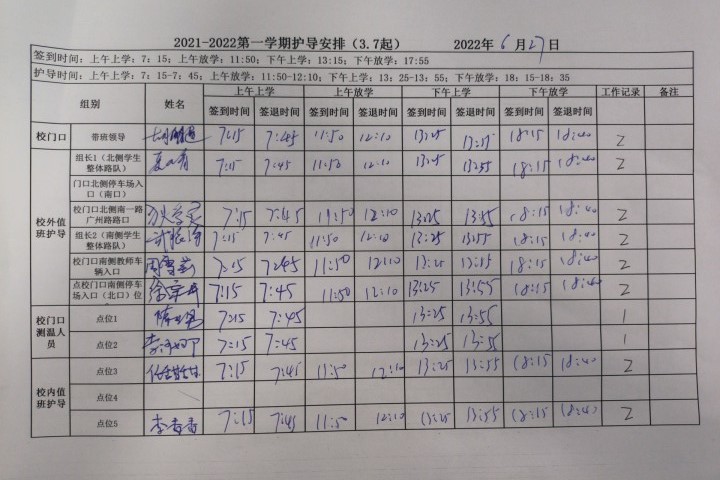 2021-2022第一学期护导安排（3.7起） 2022年 6 月 27 日
签到时间：上午上学：7：15；上午放学：11:50；下午上学：13:15；下午放学：17:55
护导时间：上午上学：7:15-7：45；上午放学：11:50-12:10；下午上学：13：25-13：55；下午放学：18：15-18：35
组别 姓名 上午上学 上午放学 下午上学 下午放学 工作记录 备注
签到时间 签退时间 签到时间 签退时间 签到时间 签退时间 签到时间 签退时间
校门口 带班领导 7:15 7:45 11:50 12:10 13:25 18:15 18:40 2
校外值班护导
组长1（北侧学生整体路队） 7:15 7:45 11:50 12:10 13:25 13:55 18:15 18:40 2
门口北侧停车场入口（南口）
校门口北侧南一路广州路路口 7:15 7:45 11:50 12:10 13:25 13:55 18:15 18:40 2
组长2（南侧学生整体路队） 7:15 7:45 11:50 12:10 13:25 13:55 18:15 18:40 2
校门口南侧教师车辆入口 7:15 7:45 11:50 12:10 13:25 13:55 18:15 18:40 2
点校门口南侧停车场入口（北口）位 7:15 7:45 11:50 12:10 13:25 13:55 18:15 18:40 2
校门口测温人员
点位1 7:15 7:45 13:25 13:55 1
点位2 7:15 7:45 13:25 13:55 1
校内值班护导
点位3 7:15 7:45 11:50 12:10 13:25 13:55 18:15 18:40 2
点位4
点位5 李春香 7:15 7:45 11:50 12:10 13:25 13:55 18:15 18:40 2